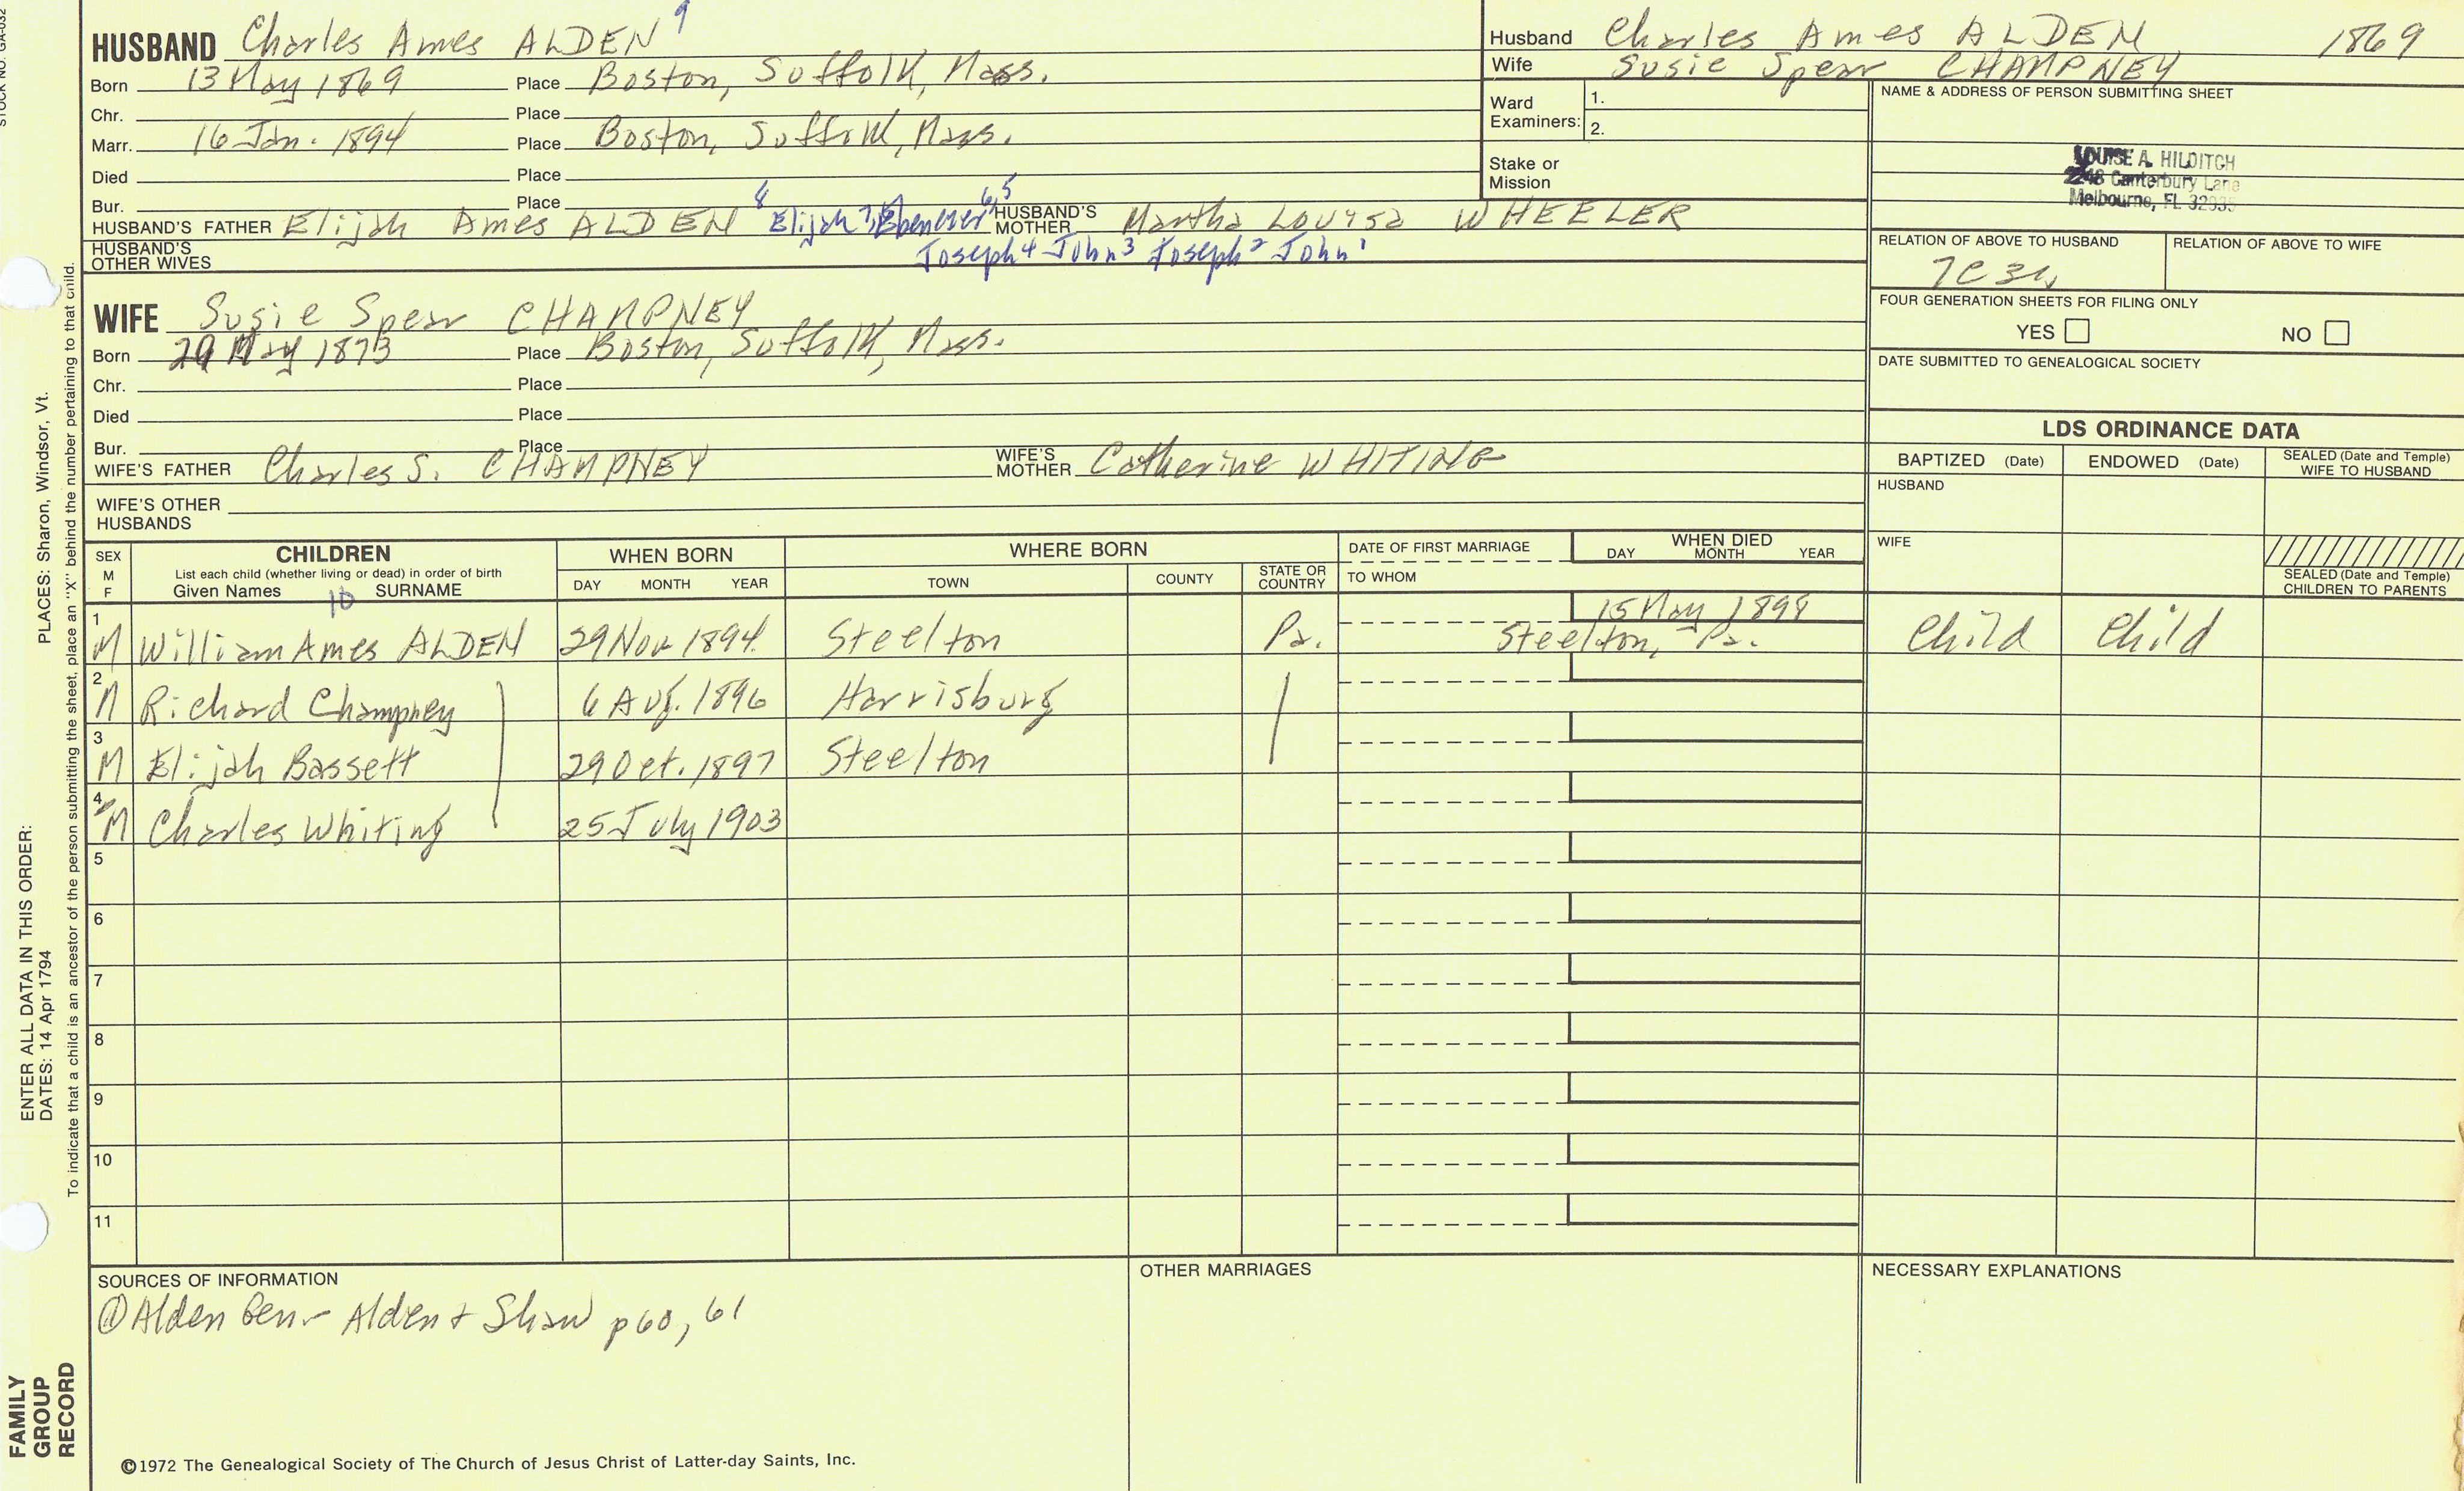 STOCK NO. GA-032
HUSBAND Charles Ames ALDEN 9
Born 13 May 1869 Place Boston, Suffolk, Mass.
Chr. Place
Marr. 16 Jan. 1894 Place Boston, Suffolk, Mass.
Died Place
Bur. Place
HUSBAND'S FATHER Elijah Ames ALDEN 8 Elijah 7, Ebenezer 6,5 HUSBAND'S MOTHER Martha Louisa WHEELER
HUSBAND'S OTHER WIVES Joseph 4 John 3 Joseph 2 John 1
Husband Charles Ames ALDEN 1869
Wife Susie Spear CHAMPNEY
Ward Examiners: 1.
2.
Stake or Mission
NAME & ADDRESS OF PERSON SUBMITTING SHEET
LOUISE A. HILDITCH
2248 Canterbury Lane
Melbourne, FL 32935
RELATION OF ABOVE TO HUSBAND RELATION OF ABOVE TO WIFE
FOUR GENERATION SHEETS FOR FILING ONLY
YES NO
DATE SUBMITTED TO GENEALOGICAL SOCIETY
WIFE Susie Spear CHAMPNEY
Born 29 May 1873 Place Boston, Suffolk, Mass.
Chr. Place
Died Place
Bur. Place
WIFE'S FATHER Charles S. CHAMPNEY WIFE'S MOTHER Catherine WHITING
WIFE'S OTHER HUSBANDS
LDS ORDINANCE DATA
BAPTIZED (Date) ENDOWED (Date) SEALED (Date and Temple) WIFE TO HUSBAND
HUSBAND
WIFE
SEALED (Date and Temple) CHILDREN TO PARENTS
SEX M F
CHILDREN
List each child (whether living or dead) in order of birth
Given Names 10 SURNAME
WHEN BORN
DAY MONTH YEAR
WHERE BORN
TOWN COUNTY STATE OR COUNTRY
DATE OF FIRST MARRIAGE
TO WHOM
WHEN DIED
DAY MONTH YEAR
1 M William Ames ALDEN 29 Nov 1894 Steelton Pa. 15 May 1898 Steelton, Pa. Child Child
2 M Richard Champney 6 Aug. 1896 Harrisburg
3 M Elijah Bassett 29 Oct. 1897 Steelton
4 M Charles Whiting 25 July 1903
5
6
7
8
9
10
11
SOURCES OF INFORMATION
① Alden Gen - Alden + Shaw p 60, 61
OTHER MARRIAGES
NECESSARY EXPLANATIONS
©1972 The Genealogical Society of The Church of Jesus Christ of Latter-day Saints, Inc.
FAMILY
GROUP
RECORD
ENTER ALL DATA IN THIS ORDER:
DATES: 14 Apr 1794 PLACES: Sharon, Windsor, Vt.
To indicate that a child is an ancestor of the person submitting the sheet, place an "X" behind the number pertaining to that child.